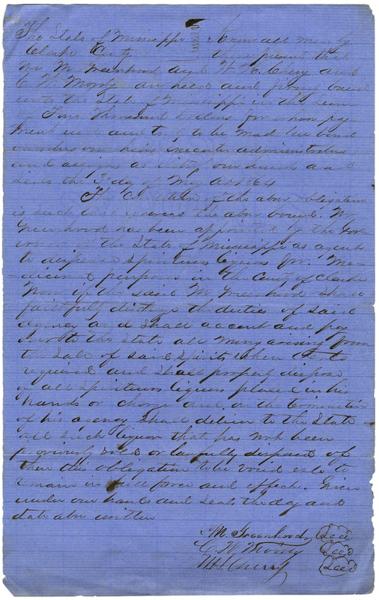 The State of Mississippi Know all men by
Clarke County these presents that
We M Greenhood and
C W Moody are held and firmly bound
unto the State of Mississippi in the sum
of Thousand Dollars for whom pay
ment well and truly to be made we bind
ourselves our heirs executors administrators
and assigns as witness our hands and
seals the 3 day of May AD 1864
The Condition of the above obligation
is such that whereas the above bound M
Greenhood has been appointed by the Gov
of the State of Mississippi as agent
to dispense Spirituous liquors for Me
dicinal purposes in the County of Clarke
Now if the said M Greenhood shall
faithfully discharge the duties of said
agency and shall account and pay
over to the State all money arising from
the sale of said Spirits when
required and shall properly dispose
of all spirituous liquors placed in his
hands or charge and on the termination
of his agency shall deliver to the State
all such liquor that has not been
properly sold or lawfully disposed of
then this obligation to be void else to
remain in full force and effect. Given
under our hands and seals the day and
date above written
M Greenhood Seal
C W Moody Seal
Seal